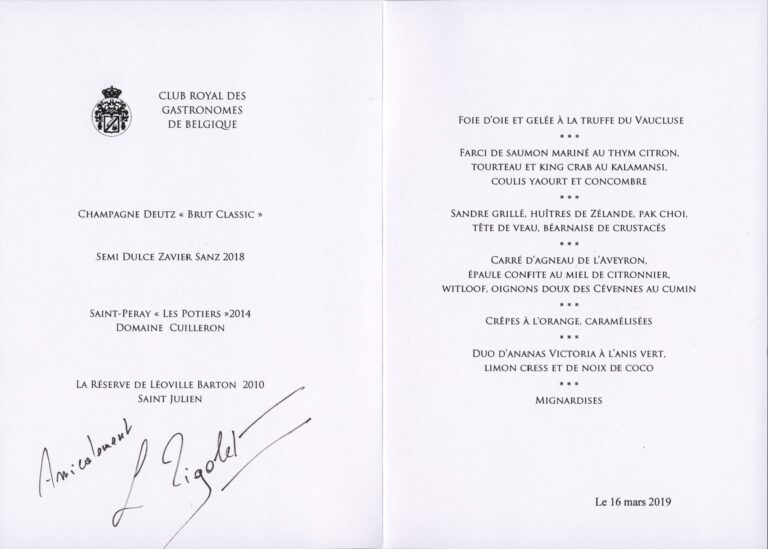 CLUB ROYAL DES
GASTRONOMES
DE BELGIQUE
CHAMPAGNE DEUTZ « BRUT CLASSIC »
SEMI DULCE ZAVIER SANZ 2018
SAINT-PERAY « LES POTIERS »2014
DOMAINE CUILLERON
LA RÉSERVE DE LÉOVILLE BARTON 2010
SAINT JULIEN
Amicalement
L Rigolet
FOIE D'OIE ET GELÉE À LA TRUFFE DU VAUCLUSE
***
FARCI DE SAUMON MARINÉ AU THYM CITRON,
TOURTEAU ET KING CRAB AU KALAMANSI,
COULIS YAOURT ET CONCOMBRE
***
SANDRE GRILLÉ, HUÎTRES DE ZÉLANDE, PAK CHOI,
TÊTE DE VEAU, BÉARNAISE DE CRUSTACÉS
***
CARRÉ D'AGNEAU DE L'AVEYRON,
ÉPAULE CONFITE AU MIEL DE CITRONNIER,
WITLOOF, OIGNONS DOUX DES CÉVENNES AU CUMIN
***
CRÊPES À L'ORANGE, CARAMÉLISÉES
***
DUO D'ANANAS VICTORIA À L'ANIS VERT,
LIMON CRESS ET DE NOIX DE COCO
***
MIGNARDISES
Le 16 mars 2019